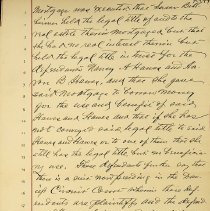 Mortgage was executed that Susan Bill
held the legal title of and to the
real estate therein mortgaged, but that
she had no real interest therein but
held the legal title in trust for the
defendants Henry A. Hawes and
B. Hawes and that she gave
said Mortgage to borrow money
for the use and benefit of said
Hawes and Hawes and that if she has
not conveyed said legal title to said
Hawes and Hawes or to one of them that she
still has the legal title but in
These defendants further say that
there is a suit now pending in the
Circuit Court wherein these def
endants are plaintiffs and the defend